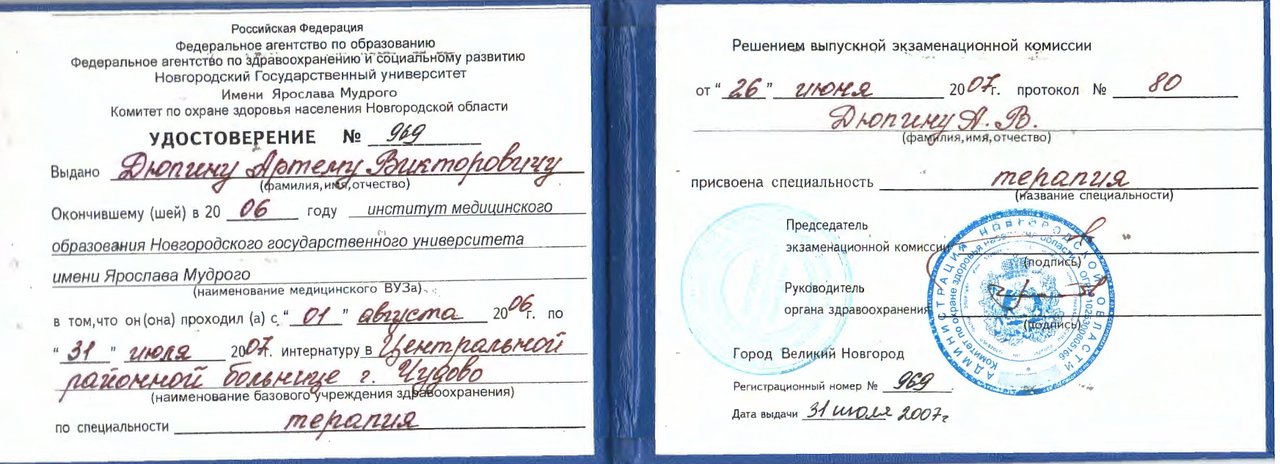 Российская Федерация
Федеральное агентство по образованию
Федеральное агентство по здравоохранению и социальному развитию
Новгородский Государственный университет
Имени Ярослава Мудрого
Комитет по охране здоровья населения Новгородской области
УДОСТОВЕРЕНИЕ № 969
Выдано Дюпину Артему Викторовичу
(фамилия,имя,отчество)
Окончившему (шей) в 20 06 году институт медицинского
образования Новгородского государственного университета
имени Ярослава Мудрого
(наименование медицинского ВУЗа)
в том,что он(она) проходил (а) с "01" августа 2006г. по
"31" июля 2007. интернатуру в Центральной
районной больнице г. Чудово
(наименование базового учреждения здравоохранения)
по специальности терапия
Решением выпускной экзаменационной комиссии
от "26" июня 2007г. протокол № 80
Дюпину А. В.
(фамилия,имя,отчество)
присвоена специальность терапия
(название специальности)
Председатель
экзаменационной комиссии
(подпись)
Руководитель
органа здравоохранения
(подпись)
АДМИНИСТРАЦИЯ НОВГОРОДСКОЙ ОБЛАСТИ
Комитет по охране здоровья населения области
Город Великий Новгород
Регистрационный номер № 969
Дата выдачи 31 июля 2007г